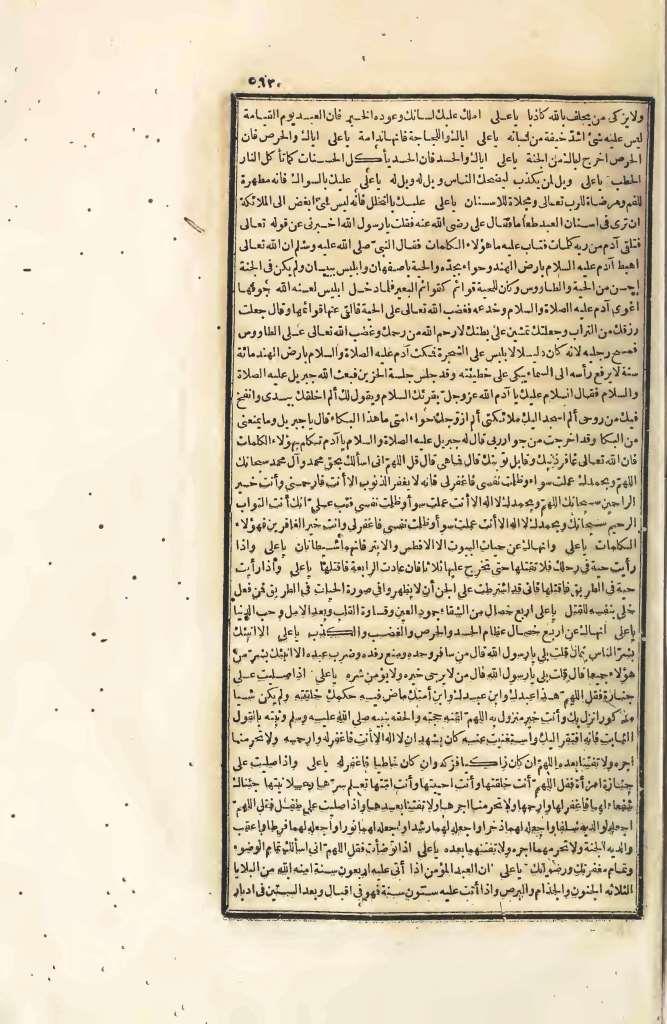 ٥٩٣٠
ولا يزكى من يحلف بالله كاذبا ياعلى املك عليك لسانك وعوده الخير فان العبد يوم القيامة
ليس عليه شئ اشد خيفة من لسانه ياعلى اياك واللجاجة فانها ندامة ياعلى اياك والحرص فان
الحرص اخرج اباك من الجنة ياعلى اياك والحسد فان الحسد يأكل الحسنات كما تأكل النار
الحطب ياعلى ويل لمن يكذب ليضحك الناس ويل له ويل له ياعلى عليك بالسواك فانه مطهرة
للفم ومرضاة للرب تعالى ومجلاة للاسنان ياعلى عليك بالتخلل فانه ليس شئ ابغض الى الملائكة
ان ترى فى اسنان العبد طعاما فقال على رضى الله عنه فقلت يارسول الله اخبرنى عن قوله تعالى
فتلقى آدم من ربه كلمات فتاب عليه ما هؤلاء الكلمات فقال النبى صلى الله عليه وسلم ان الله تعالى
اهبط آدم عليه السلام بارض الهند وحواء بجدة والحية باصفهان وابليس ببيسان ولم يكن فى الجنة
احسن من الحية والطاووس وكان للحية قوائم كقوائم البعير فلما دخل ابليس لعنه الله جوفها
اغوى آدم عليه الصلاة والسلام وخدعه فغضب الله تعالى على الحية فالقى عنها قوائمها وقال جعلت
رزقك من التراب وجعلتك تمشين على بطنك لا رحم الله من رحمك وغضب الله تعالى على الطاووس
فمسح رجليه لانه كان دليلا لابليس على الشجرة فمكث آدم عليه الصلاة والسلام بارض الهند مائة
سنة لا يرفع رأسه الى السماء يبكى على خطيئته وقد جلس جلسة الحزين فبعث الله جبريل عليه الصلاة
والسلام فقال السلام عليك يا آدم الله عز وجل يقرئك السلام ويقول لك ألم اخلقك بيدى وانفخ
فيك من روحى ألم اسجد اليك ملائكتى ألم ازوجك حواء امتى ما هذا البكاء قال ياجبريل وما يمنعنى
من البكا وقد اخرجت من جوار ربى قال له جبريل عليه الصلاة والسلام يا آدم تكلم بهؤلاء الكلمات
فان الله تعالى غافر ذنبك وقابل توبتك قال فما هى قال قل اللهم انى اسألك بحق محمد وآل محمد سبحانك
اللهم وبحمدك عملت سواء وظلمت نفسى فاغفر لى فانه لا يغفر الذنوب الا أنت فارحمنى وأنت خير
الراحمين سبحانك اللهم وبحمدك لا اله الا أنت عملت سوأ وظلمت نفسى فتب على انك أنت التواب
الرحيم سبحانك وبحمدك لا اله الا أنت عملت سوأ وظلمت نفسى فاغفر لى وانت خير الغافرين فهؤلاء
الكلمات ياعلى وانهاك عن حيات البيوت الا الافطس والابتر فانهما شيطانان ياعلى واذا
رأيت حية فى رحلك فلا تقتلها حتى تحرج عليها ثلاثا فان عادت الرابعة فاقتلها ياعلى واذا رأيت
حية فى الطريق فاقتلها فانى قد اشترطت على الجن أن لا يظهروا فى صورة الحيات فى الطريق فمن فعل
خلى بنفسه للقتل ياعلى اربع خصال من الشقاء جمود العين وقساوة القلب وبعد الامل وحب الدنيا
ياعلى انهاك عن اربع خصال عظام الحسد والحرص والغضب والكذب ياعلى الا انبئك
بشر الناس قال قلت بلى يارسول الله قال من سافر وحده ومنع رفده وضرب عبده الا انبئك بشر من
هؤلاء جميعا قال قلت بلى يارسول الله قال من لا يرجى خيره ولا يؤمن شره ياعلى اذا صليت على
جنازة فقل اللهم هذا عبدك وابن عبدك وابن أمتك ماض فيه حكمك خلقته ولم يكن شيا
مذكورا نزل بك وأنت خير منزول به اللهم لقنه حجته والحقه بنبيه صلى الله عليه وسلم وثبته بالقول
الثابت فانه افتقر اليك واستغنيت عنه كان يشهد ان لا اله الا أنت فاغفر له وارحمه ولا تحرمنا
اجره ولا تفتنا بعده اللهم ان كان زاكيا فزكه وان كان خاطيا فاغفر له ياعلى واذا صليت على
جنازة امرأة فقل اللهم أنت خلقتها وأنت احييتها وأنت امتها تعلم سرها وعلانيتها جئناك
شفعاء لها فاغفر لها وارحمها ولا تحرمنا اجرها ولا تفتنا بعدها واذا صليت على طفل فقل اللهم
اجعله لوالديه سلفا واجعله لهما ذخرا واجعله لهما رشدا واجعله لهما نورا واجعله لهما فرطا واعقب
والديه الجنة ولا تحرمهما اجره ولا تفتنهما بعده ياعلى اذا توضأت فقل اللهم انى اسألك تمام الوضوء
وتمام مغفرتك ورضوانك ياعلى ان العبد المؤمن اذا أتى عليه اربعون سنة امنه الله من البلايا
الثلاثه الجنون والجذام والبرص واذا أتت عليه ستون سنة فهو فى اقبال وبعد الستين فى ادبار